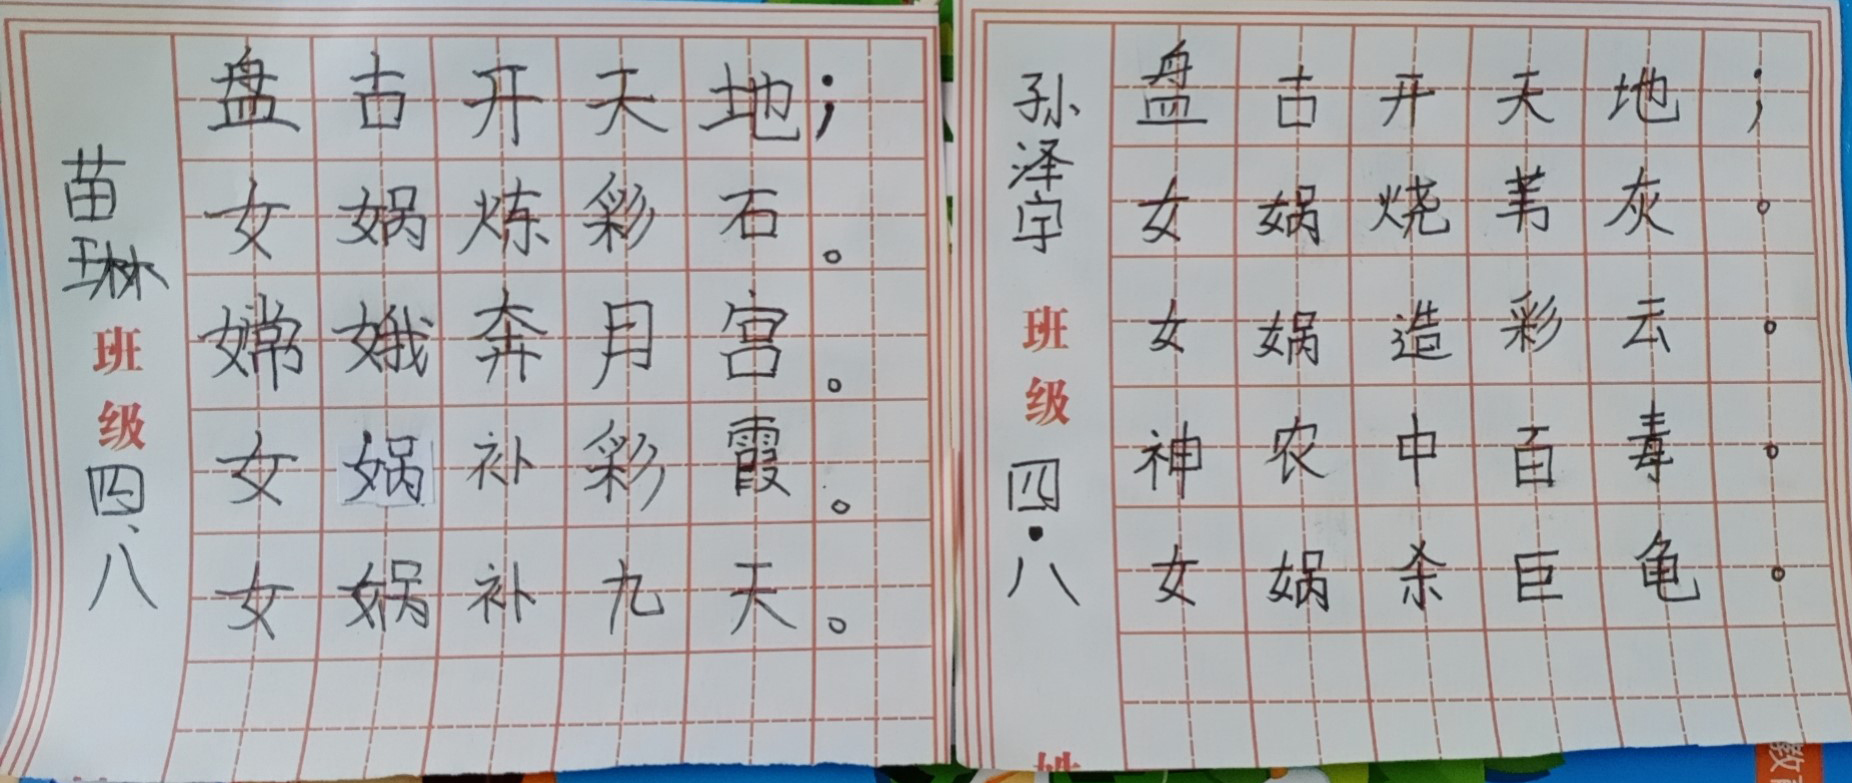 盘古开天地；
女娲炼彩石。
嫦娥奔月宫。
女娲补彩霞。
女娲补九天。
苗琳
班级
四、八
盘古开天地；
女娲烧苇灰。
女娲造彩云。
神农中百毒。
女娲杀巨龟。
孙泽宇
班级
四·八